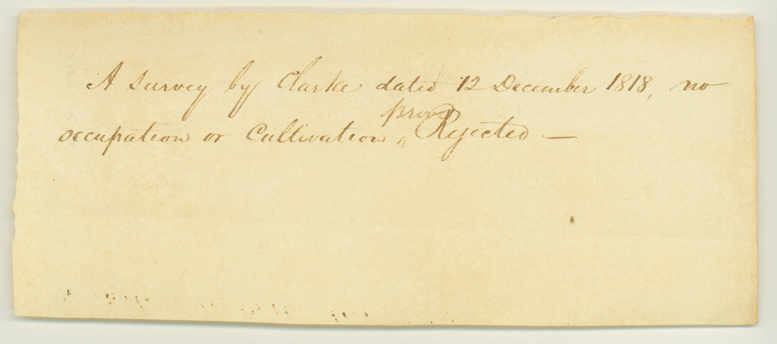 A survey by Clarke dated 12 December 1818, no
occupation or Cultivation ^ proven Rejected —